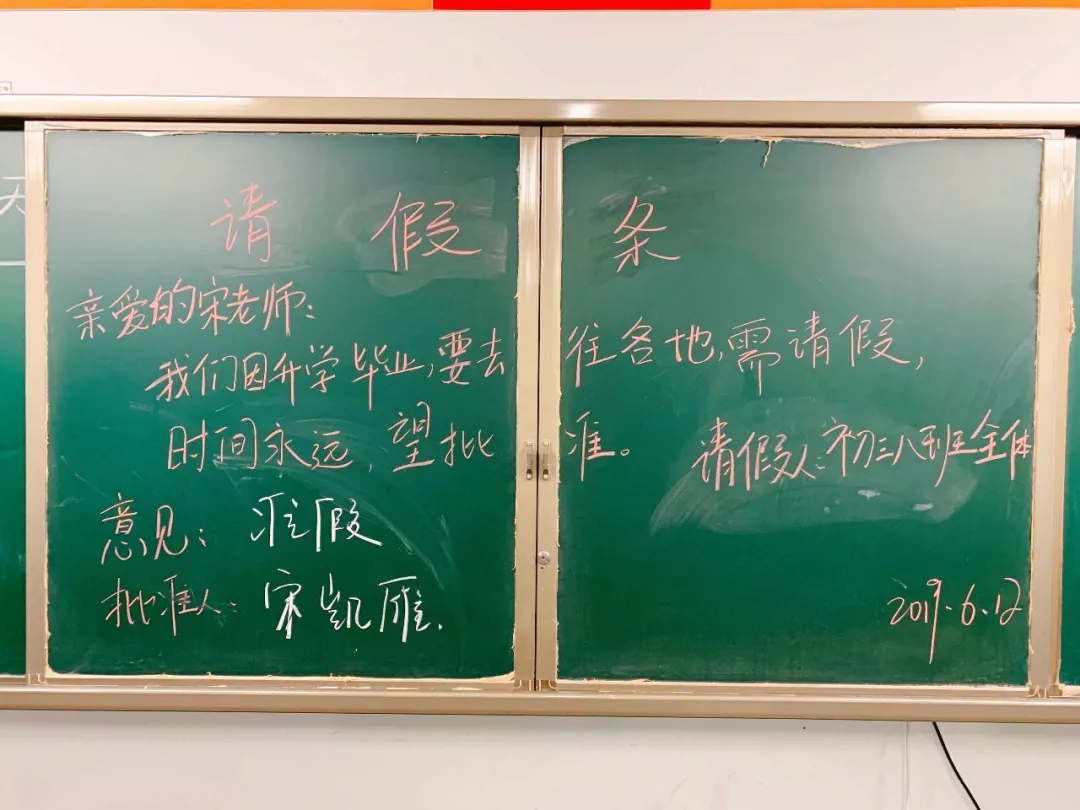 请假条
亲爱的宋老师:
我们因升学毕业,要去往各地,需请假,
时间永远,望批准。
请假人:初三八班全体
意见: 准假
批准人: 宋凯雁.
2019.6.12